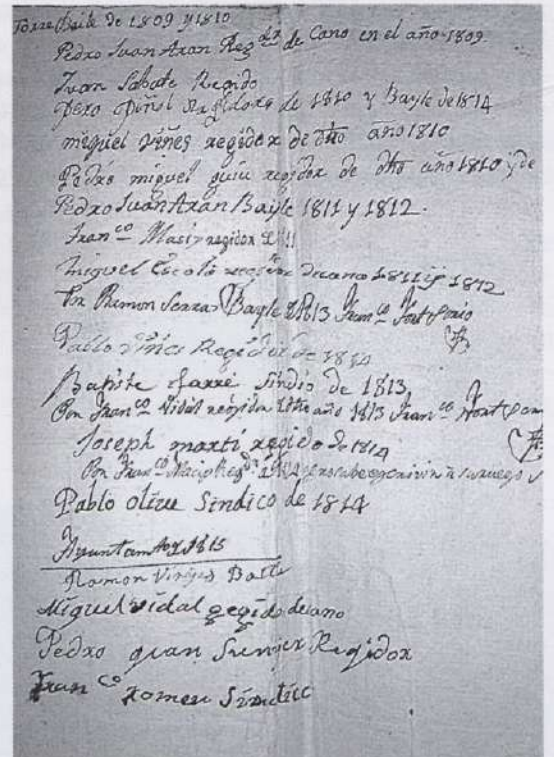 Torre Baile de 1809 y 1810
Pedro Juan Aran Reg.dor de Cano en el año 1809.
Juan Sabate Regido
Pero Piñol Regidore de 1810 y Bayle de 1814
miguel viñes regidor de dto año 1810
Pedro miguel guiu regidor de dto año 1810 y de
Pedro Juan Aran Bayle 1811 y 1812.
Fran.co Masip regidor 1811
Miguel Escolá decano 1811 y 1812
Por Ramon Serra Bayle 1813 Fran.co Font
Pablo viñes Regidor de 1814
Batiste farré Sindio de 1813
Por Fran.co Vidal regidor dto año 1813 Fran.co Font
Joseph martí regido de 1814
Por Fran.co Macip Reg.dor
Pablo olive Sindico de 1814
Ayuntam.to 1815
Ramon Vinyes Batlle
Miguel vidal regido decano
Pedro Juan Sunyer Regidor
Fran.co Romeu Sindico